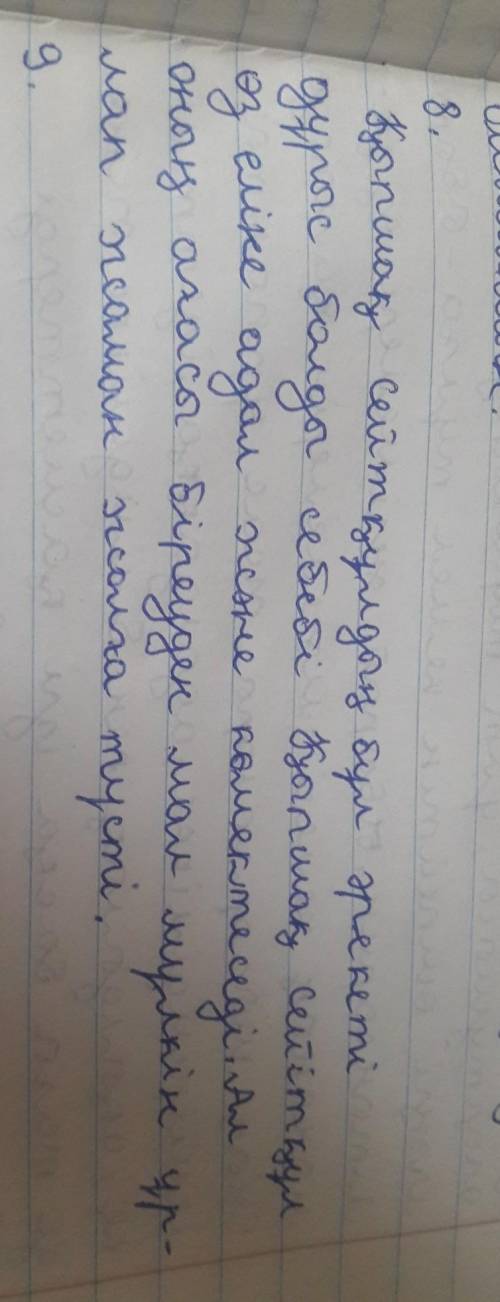 8.
Қопмақ сейтқұлдың бұл әрекеті
дұрыс болды себебі Қопмақ сейітқұл
өз еліне адал және көмектеседі. Ал
оның ағасы біреуден мал мүлкін ұр-
лап жаман жолға түсті.
9.